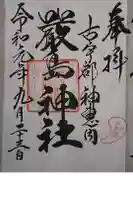 奉拝
古宇部神恩内
嚴島神社
令和元年九月二十三日